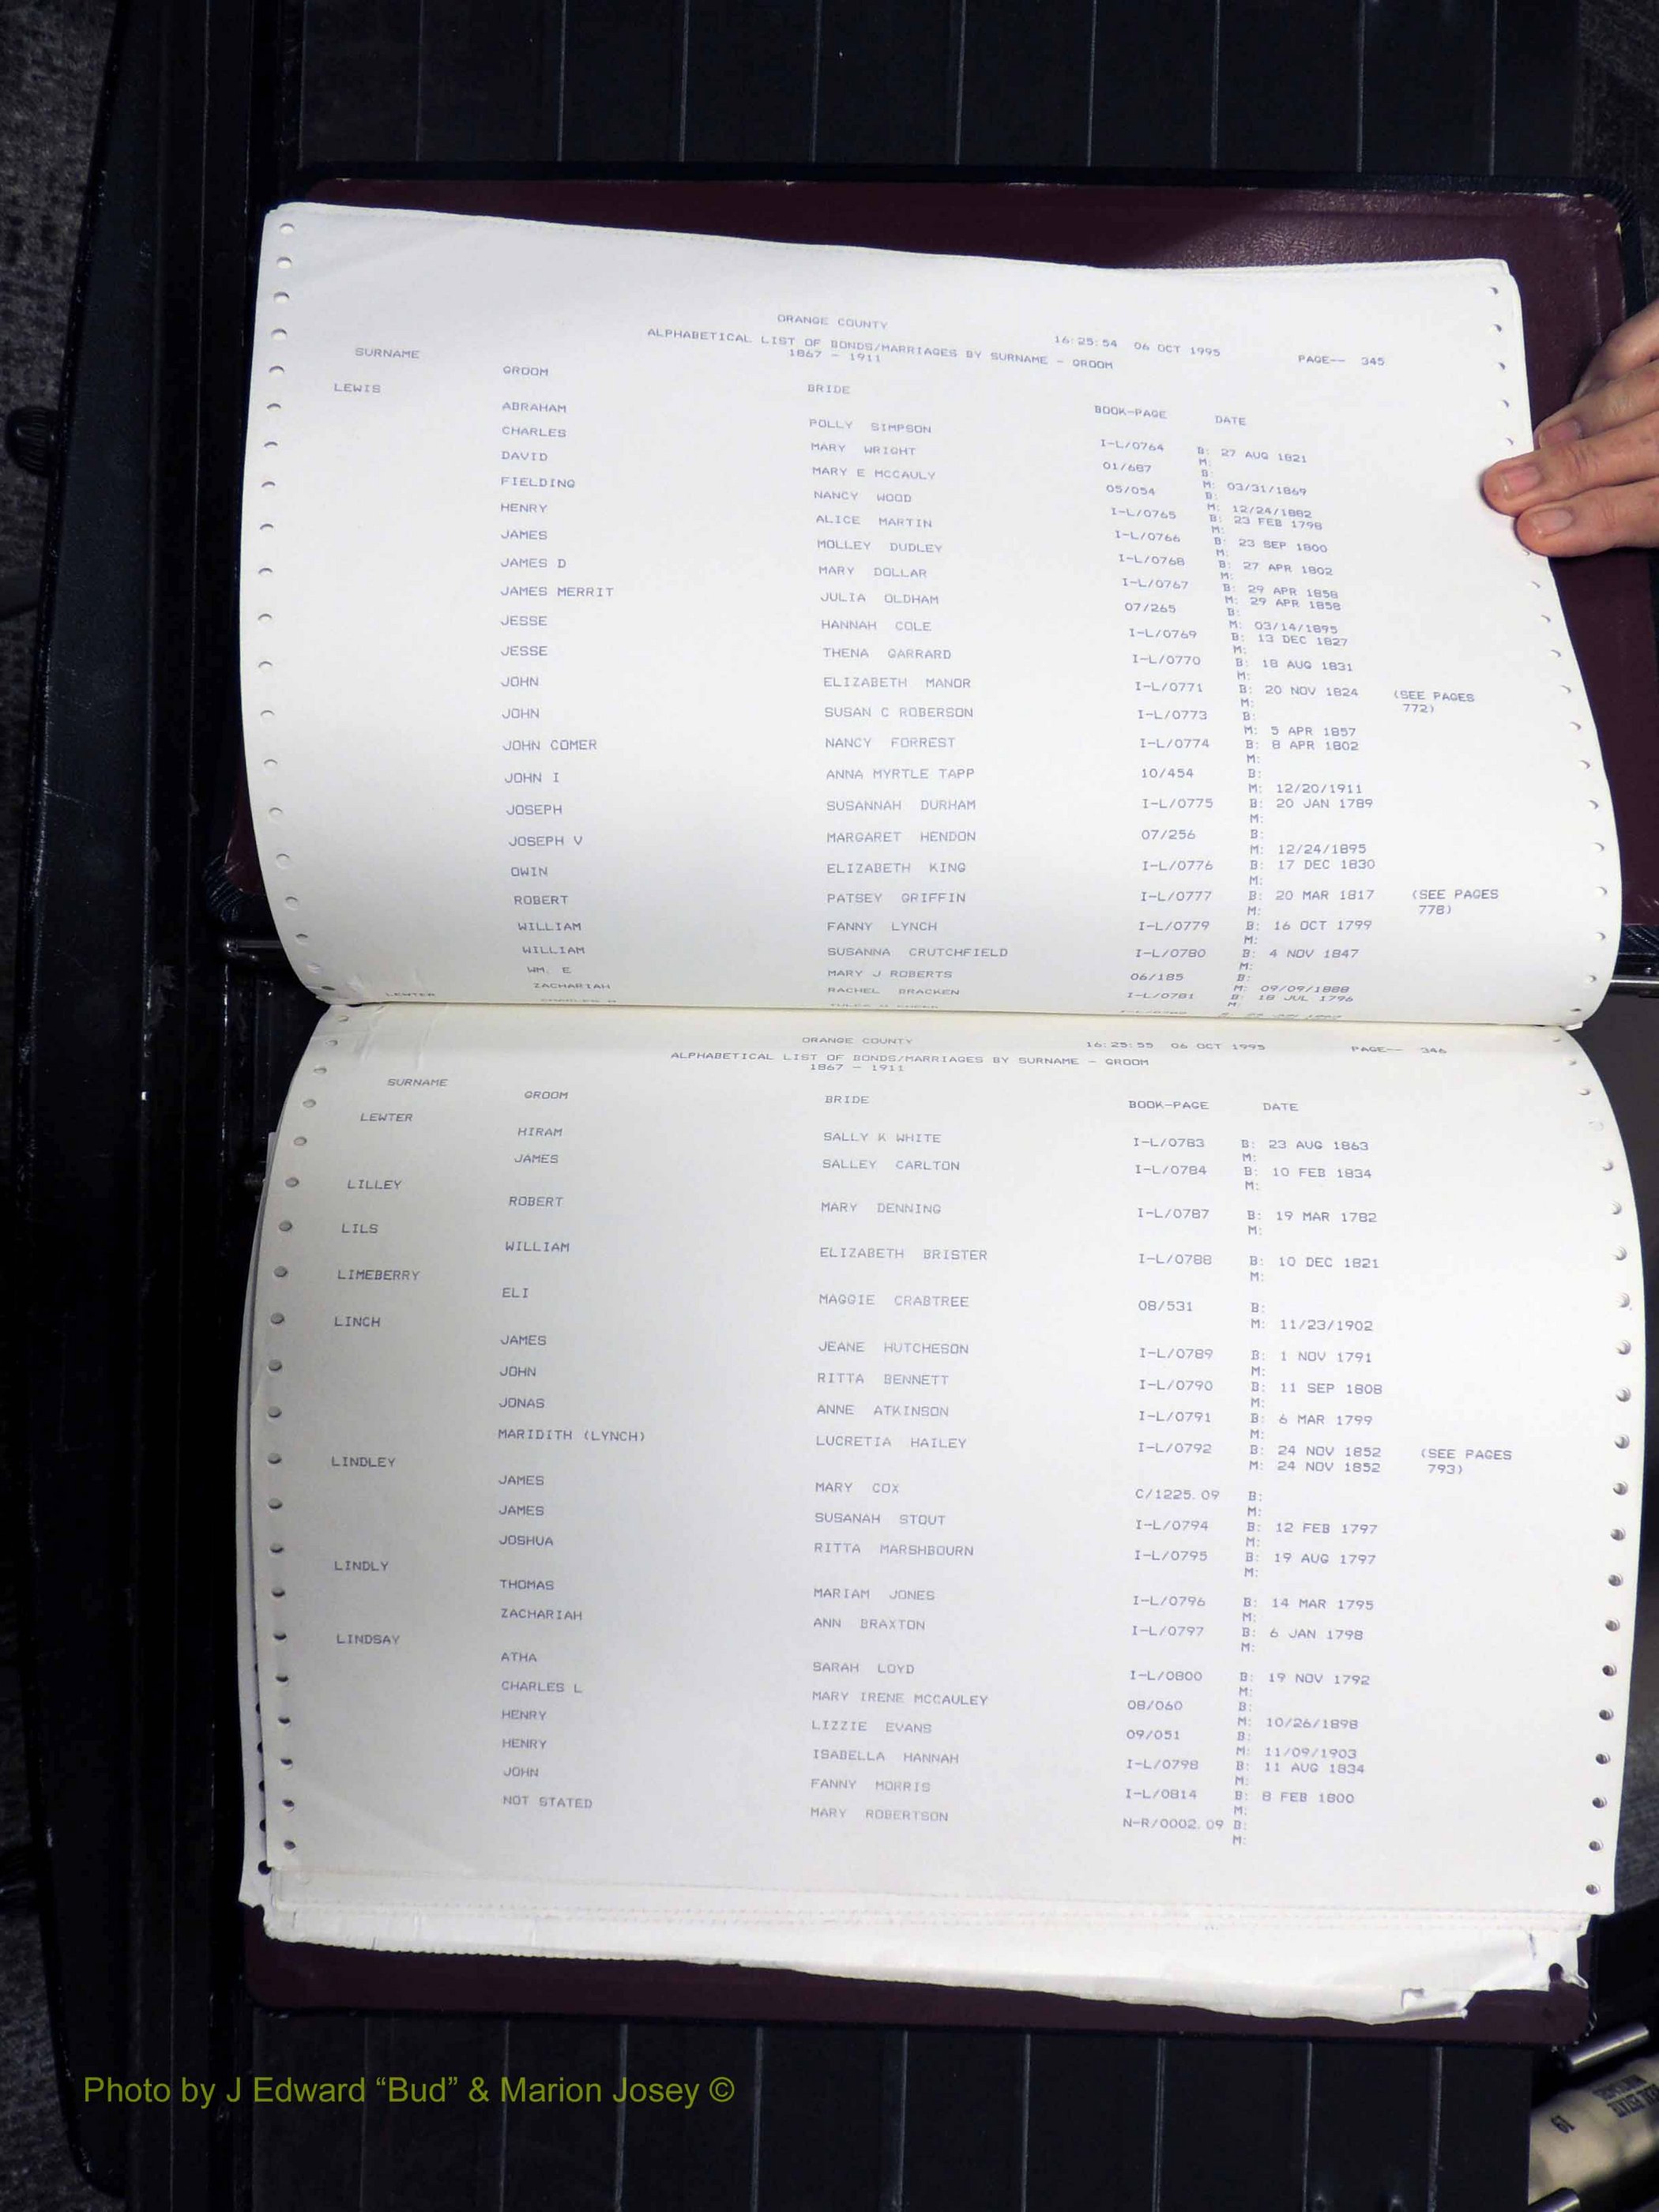 ORANGE COUNTY
ALPHABETICAL LIST OF BONDS/MARRIAGES BY SURNAME - GROOM 16:25:54 06 OCT 1995 PAGE-- 345
1867 - 1911
SURNAME GROOM BRIDE BOOK-PAGE DATE
LEWIS
ABRAHAM POLLY SIMPSON I-L/0764 B: 27 AUG 1821
M:
CHARLES MARY WRIGHT 01/687 B:
M: 03/31/1869
DAVID MARY E MCCAULY 05/054 B:
M: 12/24/1882
FIELDING NANCY WOOD I-L/0765 B: 23 FEB 1798
M:
HENRY ALICE MARTIN I-L/0766 B: 23 SEP 1800
M:
JAMES MOLLEY DUDLEY I-L/0768 B: 27 APR 1802
M:
JAMES D MARY DOLLAR I-L/0767 B: 29 APR 1858
M: 29 APR 1858
JAMES MERRIT JULIA OLDHAM 07/265 B:
M: 03/14/1895
JESSE HANNAH COLE I-L/0769 B: 13 DEC 1827
M:
JESSE THENA GARRARD I-L/0770 B: 18 AUG 1831
M:
JOHN ELIZABETH MANOR I-L/0771 B: 20 NOV 1824 (SEE PAGES
M: 772)
JOHN SUSAN C ROBERSON I-L/0773 B:
M: 5 APR 1857
JOHN COMER NANCY FORREST I-L/0774 B: 8 APR 1802
M:
JOHN I ANNA MYRTLE TAPP 10/454 B:
M: 12/20/1911
JOSEPH SUSANNAH DURHAM I-L/0775 B: 20 JAN 1789
M:
JOSEPH V MARGARET HENDON 07/256 B:
M: 12/24/1895
OWIN ELIZABETH KING I-L/0776 B: 17 DEC 1830
M:
ROBERT PATSEY GRIFFIN I-L/0777 B: 20 MAR 1817 (SEE PAGES
M: 778)
WILLIAM FANNY LYNCH I-L/0779 B: 16 OCT 1799
M:
WILLIAM SUSANNA CRUTCHFIELD I-L/0780 B: 4 NOV 1847
M:
WM. E MARY J ROBERTS 06/185 B:
M: 09/09/1888
ZACHARIAH RACHEL BRACKEN I-L/0781 B: 18 JUL 1796
M:
LEWTER
ORANGE COUNTY 16:25:55 06 OCT 1995 PAGE-- 346
ALPHABETICAL LIST OF BONDS/MARRIAGES BY SURNAME - GROOM
1867 - 1911
SURNAME GROOM BRIDE BOOK-PAGE DATE
LEWTER
HIRAM SALLY K WHITE I-L/0783 B: 23 AUG 1863
M:
JAMES SALLEY CARLTON I-L/0784 B: 10 FEB 1834
M:
LILLEY
ROBERT MARY DENNING I-L/0787 B: 19 MAR 1782
M:
LILS
WILLIAM ELIZABETH BRISTER I-L/0788 B: 10 DEC 1821
M:
LIMEBERRY
ELI MAGGIE CRABTREE 08/531 B:
M: 11/23/1902
LINCH
JAMES JEANE HUTCHESON I-L/0789 B: 1 NOV 1791
M:
JOHN RITTA BENNETT I-L/0790 B: 11 SEP 1808
M:
JONAS ANNE ATKINSON I-L/0791 B: 6 MAR 1799
M:
MARIDITH (LYNCH) LUCRETIA HAILEY I-L/0792 B: 24 NOV 1852 (SEE PAGES
M: 24 NOV 1852 793)
LINDLEY
JAMES MARY COX C/1225.09 B:
M:
JAMES SUSANAH STOUT I-L/0794 B: 12 FEB 1797
M:
JOSHUA RITTA MARSHBOURN I-L/0795 B: 19 AUG 1797
M:
LINDLY
THOMAS MARIAM JONES I-L/0796 B: 14 MAR 1795
M:
ZACHARIAH ANN BRAXTON I-L/0797 B: 6 JAN 1798
M:
LINDSAY
ATHA SARAH LOYD I-L/0800 B: 19 NOV 1792
M:
CHARLES L MARY IRENE MCCAULEY 08/060 B:
M: 10/26/1898
HENRY LIZZIE EVANS 09/051 B:
M: 11/09/1903
HENRY ISABELLA HANNAH I-L/0798 B: 11 AUG 1834
M:
JOHN FANNY MORRIS I-L/0814 B: 8 FEB 1800
M:
NOT STATED MARY ROBERTSON N-R/0002.09 B:
M:
Photo by J Edward “Bud” & Marion Josey ©
19